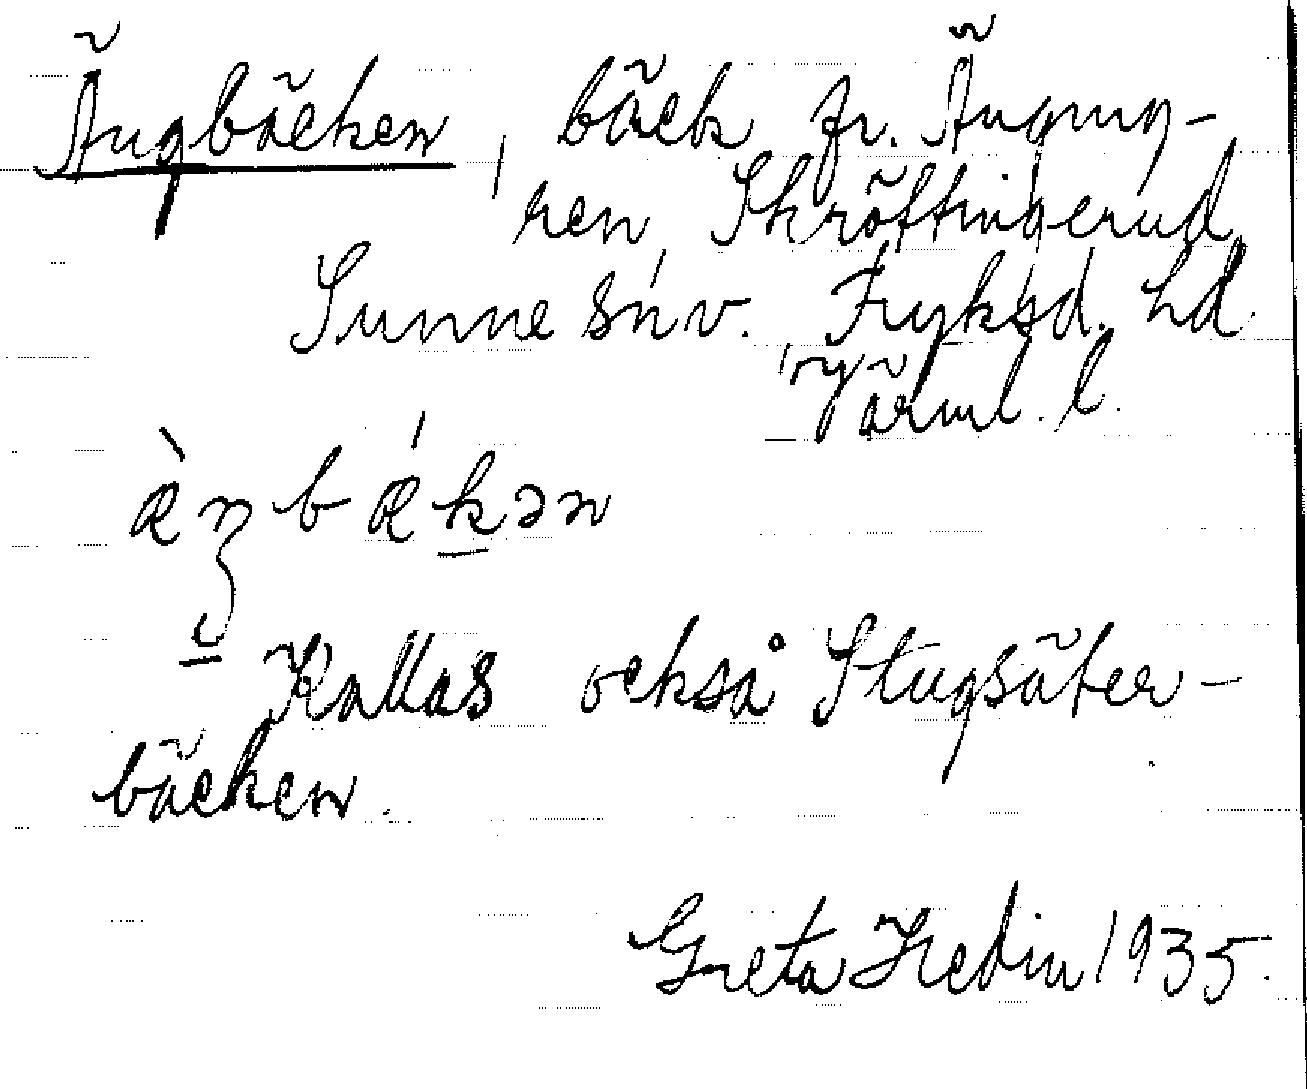 Ängbäcken, bäck fr. Ängmy-
ren, Skröftingerud,
Sunne sn v., Fryksd. hd.
Värml. l.
æ̀ŋbǽkən
Kallas också Stugsäter-
bäcken.
Greta Hedin 1935.